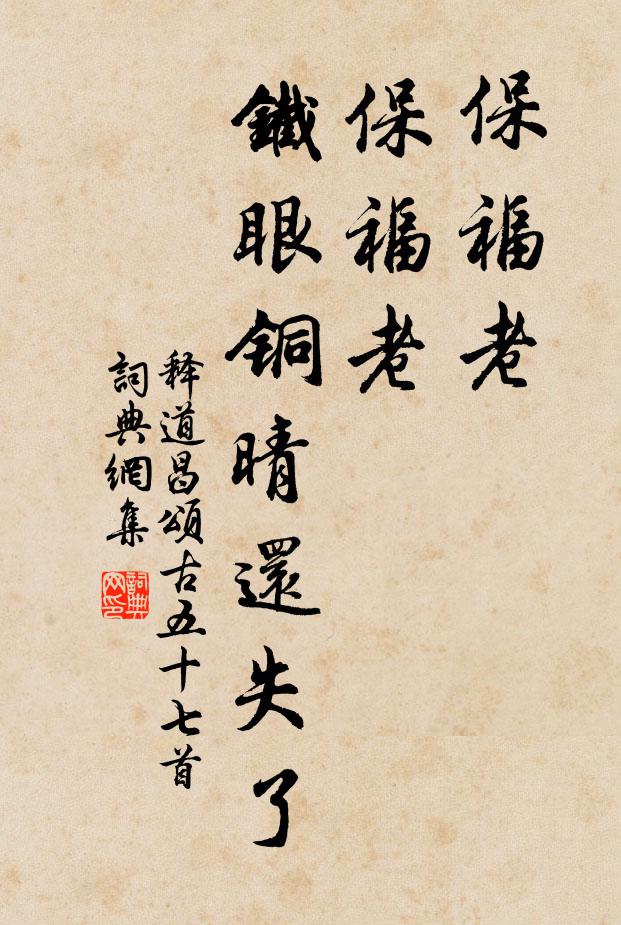 保福老
保福老
鐵眼銅晴還失了
释道昌頌古五十七首
詞典網集
詞典网印